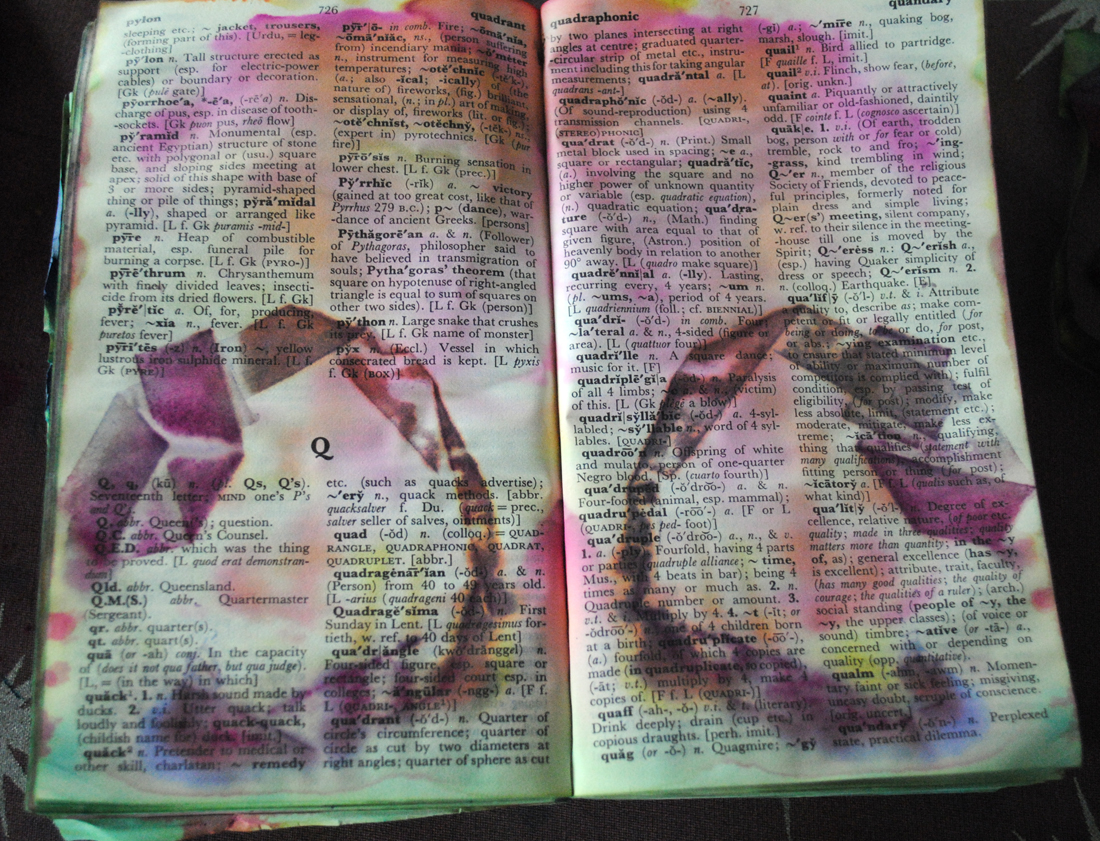 pylon
726
quadrant
sleeping etc.; ~ jacket, trousers,
(forming part of this). [Urdu, = leg-
-clothing]
pȳ'lon n. Tall structure erected as
support (esp. for electric-power
cables) or boundary or decoration.
[Gk (pulē gate)]
pyorrhoe'a, *-ē'a, (-rē'a) n. Dis-
charge of pus, esp. in disease of tooth-
-sockets. [Gk puon pus, rheō flow]
pȳ'ramid n. Monumental (esp.
ancient Egyptian) structure of stone
etc. with polygonal or (usu.) square
base, and sloping sides meeting at
apex; solid of this shape with base of
3 or more sides; pyramid-shaped
thing or pile of things; pȳrǎ'mǐdal
a. (-lly), shaped or arranged like
pyramid. [L f. Gk puramis -mid-]
pȳre n. Heap of combustible
material, esp. funeral pile for
burning a corpse. [L f. Gk (PYRO-)]
pȳrē'thrum n. Chrysanthemum
with finely divided leaves; insecti-
cide from its dried flowers. [L f. Gk]
pȳrě'tǐc a. Of, for, producing,
fever; ~xia n., fever. [L f. Gk
puretos fever]
pȳrī'tēs (-z) n. (Iron) ~, yellow
lustrous iron sulphide mineral. [L f.
Gk (PYRE)]
pȳr'ō- in comb. Fire; ~ōmā'nia,
~ōmā'nǐăc, ns., (person suffering
from) incendiary mania; ~ō'mēter
n., instrument for measuring high
temperatures; ~otě'chnǐc (-těk-)
(a.; also ~ical; ~ically) of (the
nature of) fireworks, (fig.) brilliant,
sensational, (n.; in pl.) art of making
or display of, fireworks (lit. or fig.);
~otě'chnǐst, ~otěchnȳ, (-těk-) ns.,
(expert in) pyrotechnics. [Gk (pur
fire)]
pȳrō'sǐs n. Burning sensation in
lower chest. [L f. Gk (prec.)]
Pȳ'rrhǐc (-rĭk) a. ~ victory
(gained at too great cost, like that of
Pyrrhus 279 B.C.); p~ (dance), war-
-dance of ancient Greeks. [persons]
Pȳthăgorē'an a. & n. (Follower)
of Pythagoras, philosopher said to
have believed in transmigration of
souls; Pytha'goras' theorem (that
square on hypotenuse of right-angled
triangle is equal to sum of squares on
other two sides). [L f. Gk (person)]
pȳ'thon n. Large snake that crushes
its prey. [L f. Gk name of monster]
pȳx n. (Eccl.) Vessel in which
consecrated bread is kept. [L pyxis
f. Gk (BOX)]
Q
Q, q, (kū) n. (pl. Qs, Q's).
Seventeenth letter; MIND one's P's
and Q's.
Q. abbr. Queen('s); question.
Q.C. abbr. Queen's Counsel.
Q.E.D. abbr. which was the thing
to be proved. [L quod erat demonstran-
dum]
Qld. abbr. Queensland.
Q.M.(S.) abbr. Quartermaster
(Sergeant).
qr. abbr. quarter(s).
qt. abbr. quart(s).
quā (or -ah) conj. In the capacity
of (does it not qua father, but qua judge).
[L, = (in the way) in which]
quăck¹. 1. n. Harsh sound made by
ducks. 2. v.i. Utter quack; talk
loudly and foolishly; quack-quack,
(childish name for) duck. [imit.]
quăck² n. Pretender to medical or
other skill, charlatan; ~ remedy
etc. (such as quacks advertise);
~'erȳ n., quack methods. [abbr.
quacksalver f. Du. (quack = prec.,
salver seller of salves, ointments)]
quad (-ŏd) n. (colloq.) = QUAD-
RANGLE, QUADRAPHONIC, QUADRAT,
QUADRUPLET. [abbr.]
quadragēnār'ian (-ŏd-) a. & n.
(Person) from 40 to 49 years old.
[L -arius (quadrageni 40 each)]
Quadragě'sǐma (-ŏd-) n. First
Sunday in Lent. [L quadragesimus for-
tieth, w. ref. to 40 days of Lent]
qua'drăngle (kwŏ'drănggel) n.
Four-sided figure, esp. square or
rectangle; four-sided court esp. in
colleges; ~ă'ngūlar (-ngg-) a. [F f.
L (QUADRI-, ANGLE¹)]
qua'drant (-ŏ'd-) n. Quarter of
circle's circumference; quarter of
circle as cut by two diameters at
right angles; quarter of sphere as cut
quadraphonic
727
quandary
by two planes intersecting at right
angles at centre; graduated quarter-
-circular strip of metal etc., instru-
ment including this for taking angular
measurements; quadră'ntal a. [L
quadrans -ant-]
quadraphŏ'nǐc (-ŏd-) a. (~ally).
(Of sound-reproduction) using 4
transmission channels. [QUADRI-,
(STEREO)PHONIC]
qua'drat (-ŏ'd-) n. (Print.) Small
metal block used in spacing; ~e a.,
square or rectangular; quadră'tǐc,
(a.) involving the square and no
higher power of unknown quantity
or variable (esp. quadratic equation),
(n.) quadratic equation; qua'dra-
ture (-ŏ'd-) n., (Math.) finding
square with area equal to that of
given figure, (Astron.) position of
heavenly body in relation to another
90° away. [L (quadro make square)]
quadrě'nnǐ|al a. (-lly). Lasting,
recurring every, 4 years; ~um n.
(pl. ~ums, ~a), period of 4 years.
[L quadriennium (foll.; cf. BIENNIAL)]
qua'drǐ- (-ŏ'd-) in comb. Four;
~la'teral a. & n., 4-sided (figure or
area). [L (quattuor four)]
quadrǐ'lle n. A square dance;
music for it. [F]
quadriplē'gǐ|a (-ŏd-) n. Paralysis
of all 4 limbs; ~c a. & n., (victim)
of this. [L (Gk plēgē a blow)]
quadrǐ|sȳllă'bǐc (-ŏd-) a. 4-syl-
labled; ~sȳ'llable n., word of 4 syl-
lables. [QUADRI-]
quadrōō'n n. Offspring of white
and mulatto, person of one-quarter
Negro blood. [Sp. (cuarto fourth)]
qua'druped (-ŏ'drōō-) a. & n.
Four-footed (animal, esp. mammal);
quadru'pedal (-rōō'-) a. [F or L
(QUADRI-, pes ped- foot)]
qua'druple (-ŏ'drōō-) a., n., & v.
1. a. (-ply). Fourfold, having 4 parts
or parties (quadruple alliance; ~ time,
Mus., with 4 beats in bar); being 4
times as many or much as. 2. n.
Quadruple number or amount. 3.
v.t. & i. Multiply by 4. 4. ~t (-ĭt; or
-ŏdrōō'-) n., one of 4 children born
at a birth; quadru'plicate (-ōō'-),
(a.) fourfold, of which 4 copies are
made (in quadruplicate, so copied),
(-āt; v.t.) multiply by 4, make 4
copies of. [F f. L (QUADRI-)]
quaff (-ah-, -ŏ-) v.t. & i. (literary).
Drink deeply; drain (cup etc.) in
copious draughts. [perh. imit.]
quăg (or -ŏ-) n. Quagmire; ~'gȳ
(-gĭ) a.; ~'mīre n., quaking bog,
marsh, slough. [imit.]
quail¹ n. Bird allied to partridge.
[F quaille f. L, imit.]
quail² v.i. Flinch, show fear, (before,
at). [orig. unkn.]
quaint a. Piquantly or attractively
unfamiliar or old-fashioned, daintily
odd. [F cointe f. L (cognosco ascertain)]
quāk|e. 1. v.i. (Of earth, trodden
bog, person with or for fear or cold)
tremble, rock to and fro; ~'ing-
-grass, kind trembling in wind;
Q~'er n., member of the religious
Society of Friends, devoted to peace-
ful principles, formerly noted for
plain dress and simple living;
Q~er(s') meeting, silent company,
w. ref. to their silence in the meeting-
-house till one is moved by the
Spirit; Q~'eress n.; Q~'erish a.,
(esp.) having Quaker simplicity of
dress or speech; Q~'erism n. 2.
n. (colloq.) Earthquake. [E]
qua'lǐf|ȳ (-ŏ'l-) v.t. & i. Attribute
quality to, describe as; make com-
petent or fit or legally entitled (for
being or doing, to be or do, for post,
or abs.; ~ying examination etc.,
to ensure that stated minimum level
of ability or maximum number
competitors is complied with); fulfil
condition, esp. by passing test of
eligibility, (for post); modify, make
less absolute, limit, (statement etc.);
moderate, mitigate, make less ex-
treme; ~ica'tion n., qualifying,
thing that qualifies (statement with
many qualifications), accomplishment
fitting person or thing (for post);
~icātorȳ a. [F f. L (qualis such as, of
what kind)]
qua'lǐt|ȳ (-ŏ'l-) n. Degree of ex-
cellence, relative nature, (of poor etc.
quality; made in three qualities; quality
matters more than quantity; in the ~y
of, as); general excellence (has ~y,
is excellent); attribute, trait, faculty,
(has many good qualities; the quality of
courage; the qualities of a ruler); (arch.)
social standing (people of ~y, the
~y, the upper classes); (of voice or
sound) timbre; ~ative (or -tā-) a.,
concerned with or depending on
quality (opp. quantitative).
qualm (-ahm, -awm) n. Momen-
tary faint or sick feeling; misgiving,
uneasy doubt, scruple of conscience.
[orig. uncert.]
qua'ndarȳ (-ŏ'n-) n. Perplexed
state, practical dilemma.